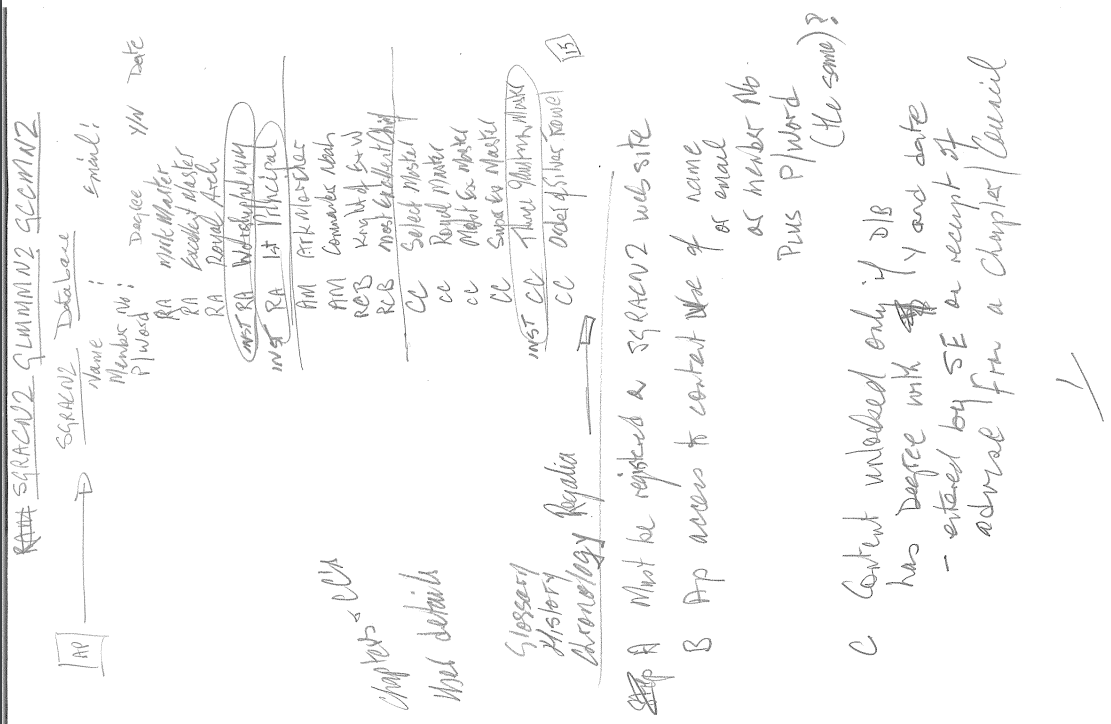 SGRACN2 GLMMMN2 GCCMN2
AP
SGRACN2 Database
Name : email:
Member No :
P/Word Degree Y/N Date
RA Mark Master
RA Excellent Master
RA Royal Arch
INST RA Worshipful MMM
INST RA 1st Principal
AM Ark Mariner
AM Commander Noah
RCB Knight of E+W
RCB Most Excellent Chief
CC Select Master
CC Royal Master
CC Most Ex Master
CC Super Ex Master
INST CC Thrice Illustrious Master
CC Order of Silver Trowel
15
Chapters & CC's
User details
Glossary
History
Chronology Regalia
A Must be registered a SGRACN2 website
B App access to content use of name
or email
or member No
Plus P/Word
(the same)?
C Content unlocked only if D/B
has Degree with Y and date
- entered by SE on receipt of
advise from a Chapter/Council